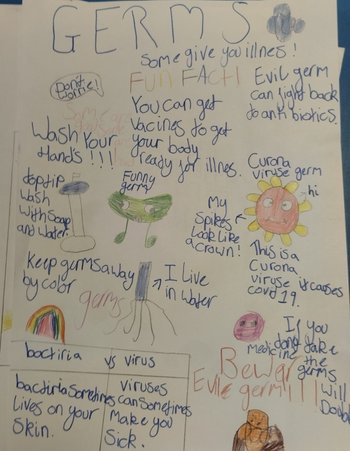 GERMS
Some give you illnes!
Don't
worrie!
FUN FACT!
Evil germ
can fight back
to anti biotics
You can get
vacines to get
your body
ready for illnes.
Wash Your
Hands!!!!
top tip
wash
with Soap
and water
Funny
germ
My
Spikes
Look like
a crown!
Curona
viruse germ
hi
This is a
Curona
viruse & causes
covid 19.
Keep germs away
by color
germs
I Live
in water
If you
dont take
Medicine the
germs
Will
Double
Bewar
Evile germ!!!
bactiria vs virus
bactiria Sometimes
lives on your
Skin.
viruses
can Sometimes
Make you
Sick.